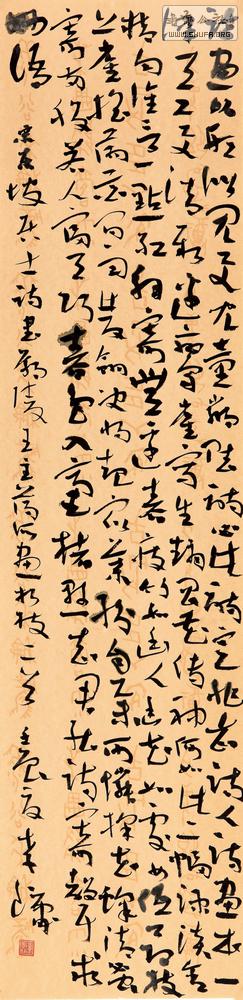 论画以形似见与儿童邻赋诗必此诗定非知诗人诗画本一
律天工与清新边鸾雀写生赵昌花传神何如此二幅疏淡含
精匀谁言一点红解寄无边春瘦竹如幽人幽花如处女低昂枝
上雀摇荡花间雨双翎决将起众叶纷自举可怜采花蜂清蜜
寄两股若人富天巧春色入毫楮悬知君能诗寄声求
妙语 东坡居士诗书鄢陵王主簿所画折枝二首